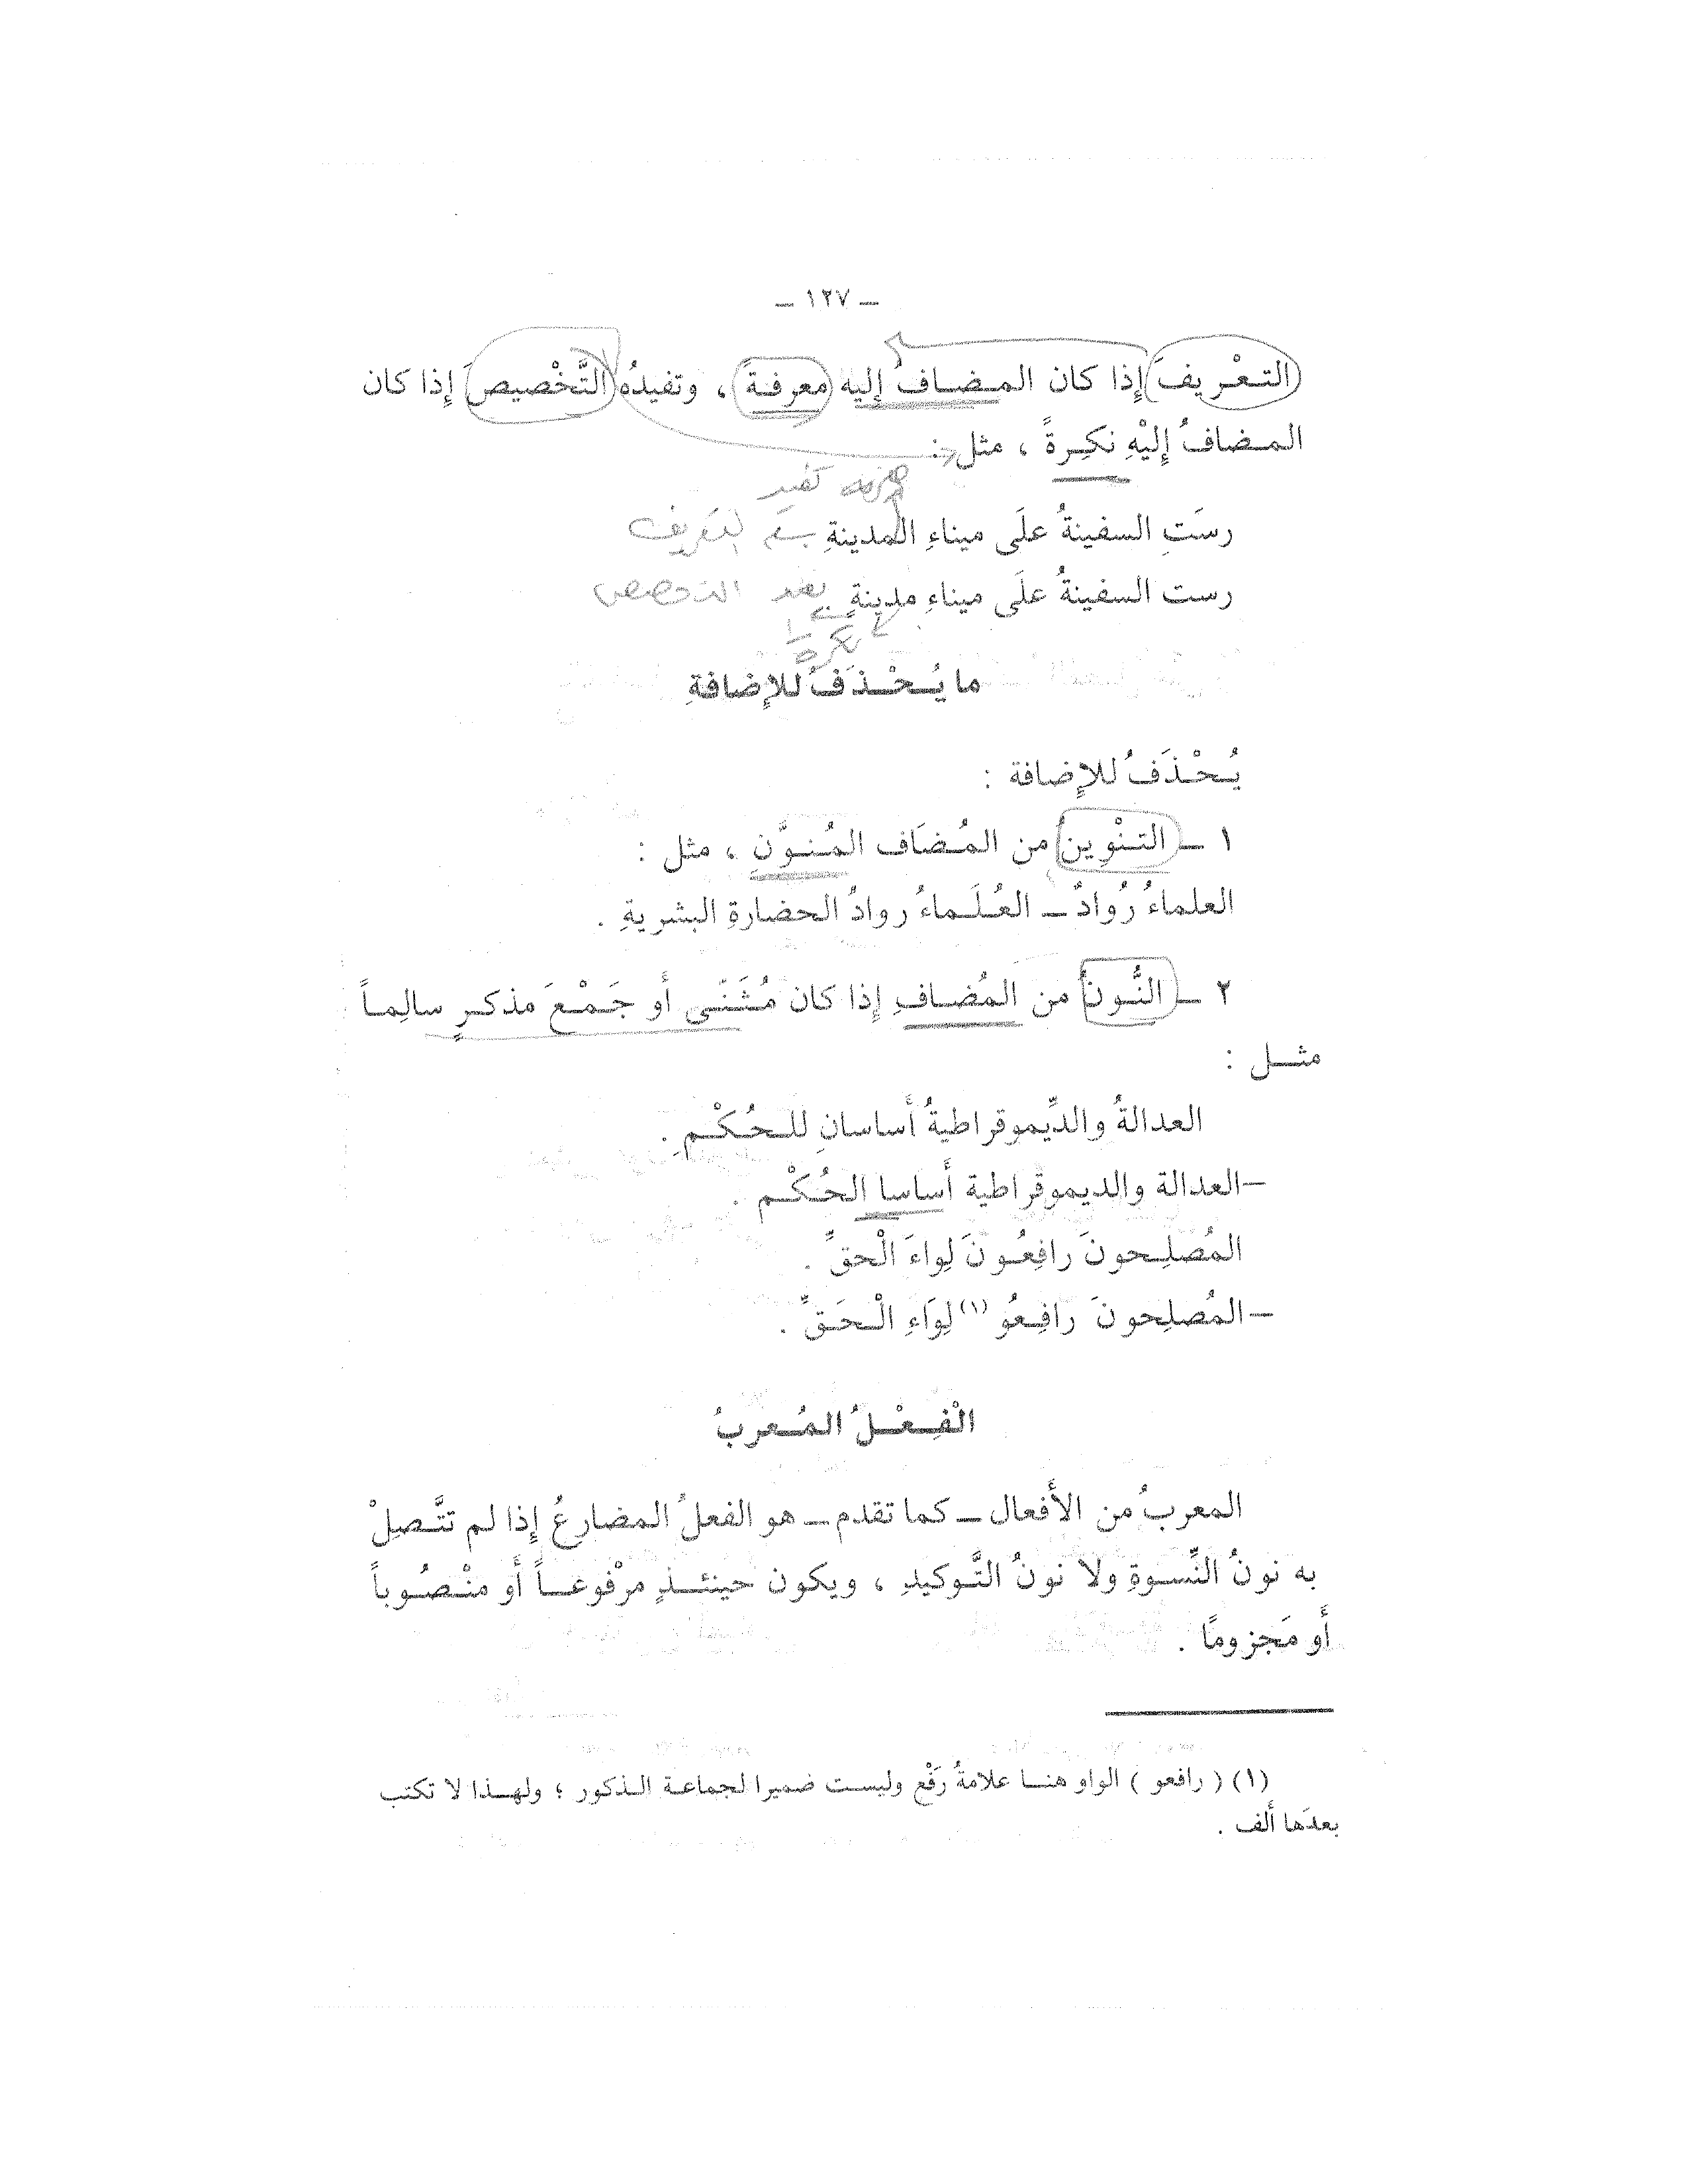 – ١٢٧ –
التعْريفَ إِذا كان المضافُ إِليه معرفةً ، وتفيدُه التَّخْصيصَ إِذا كان
المضافُ إِليْهِ نكِرةً ، مثل :
رسَتِ السفينةُ علَى ميناءِ المدينةِ
رست السفينةُ علَى ميناءِ مدينةٍ يفيد التخصيص
نكرة
ما يُحْذَفُ للإِضافةِ
يُحْذَفُ للإِضافة :
١ – التنْوِينُ من المُضَاف المُنوَّنِ ، مثل :
العلماءُ رُوادٌ – العُلَماءُ روادُ الحضارةِ البشريةِ .
٢ – النُّونُ من المُضافِ إِذا كان مُثَنَّى أَو جَمْعَ مذكرٍ سالِماً
مثل :
العدالةُ والدِّيموقراطيةُ أَساسانِ للحُكْمِ .
–العدالة والديموقراطية أَساسا الحُكْم .
المُصلِحونَ رافِعُونَ لِواءَ الْحقِّ .
–المُصلِحونَ رافِعُو (١) لِوَاءِ الْحَقِّ .
الْفِعْلُ المُعربُ
المعربُ من الأَفعال – كما تقدم – هو الفعلُ المضارعُ إِذا لم تتَّصِلْ
به نونُ النِّسوةِ ولا نونُ التَّوكيدِ ، ويكون حينئذٍ مرْفوعاً أَو منْصُوباً
أَو مَجزومًا .
(١) ( رافعو ) الواو هنا علامةُ رَفْع وليست ضميرا لجماعة الذكور ؛ ولهذا لا تكتب
بعدَها أَلف .